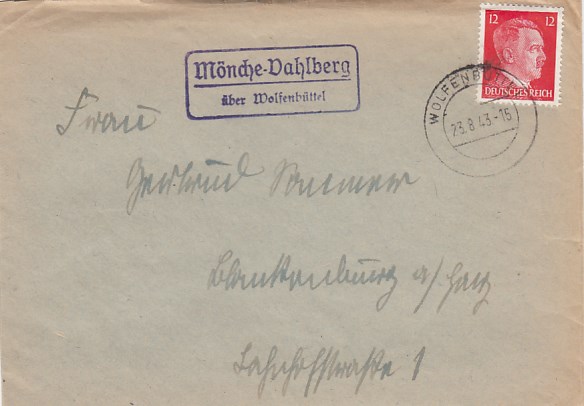 Mönche-Vahlberg
über Wolfenbüttel
12 12
DEUTSCHES REICH
WOLFENB
23.8.43.-16
Frau
Gertrud Sommer
Blankenburg a/Harz
Bahnhofstraße 1